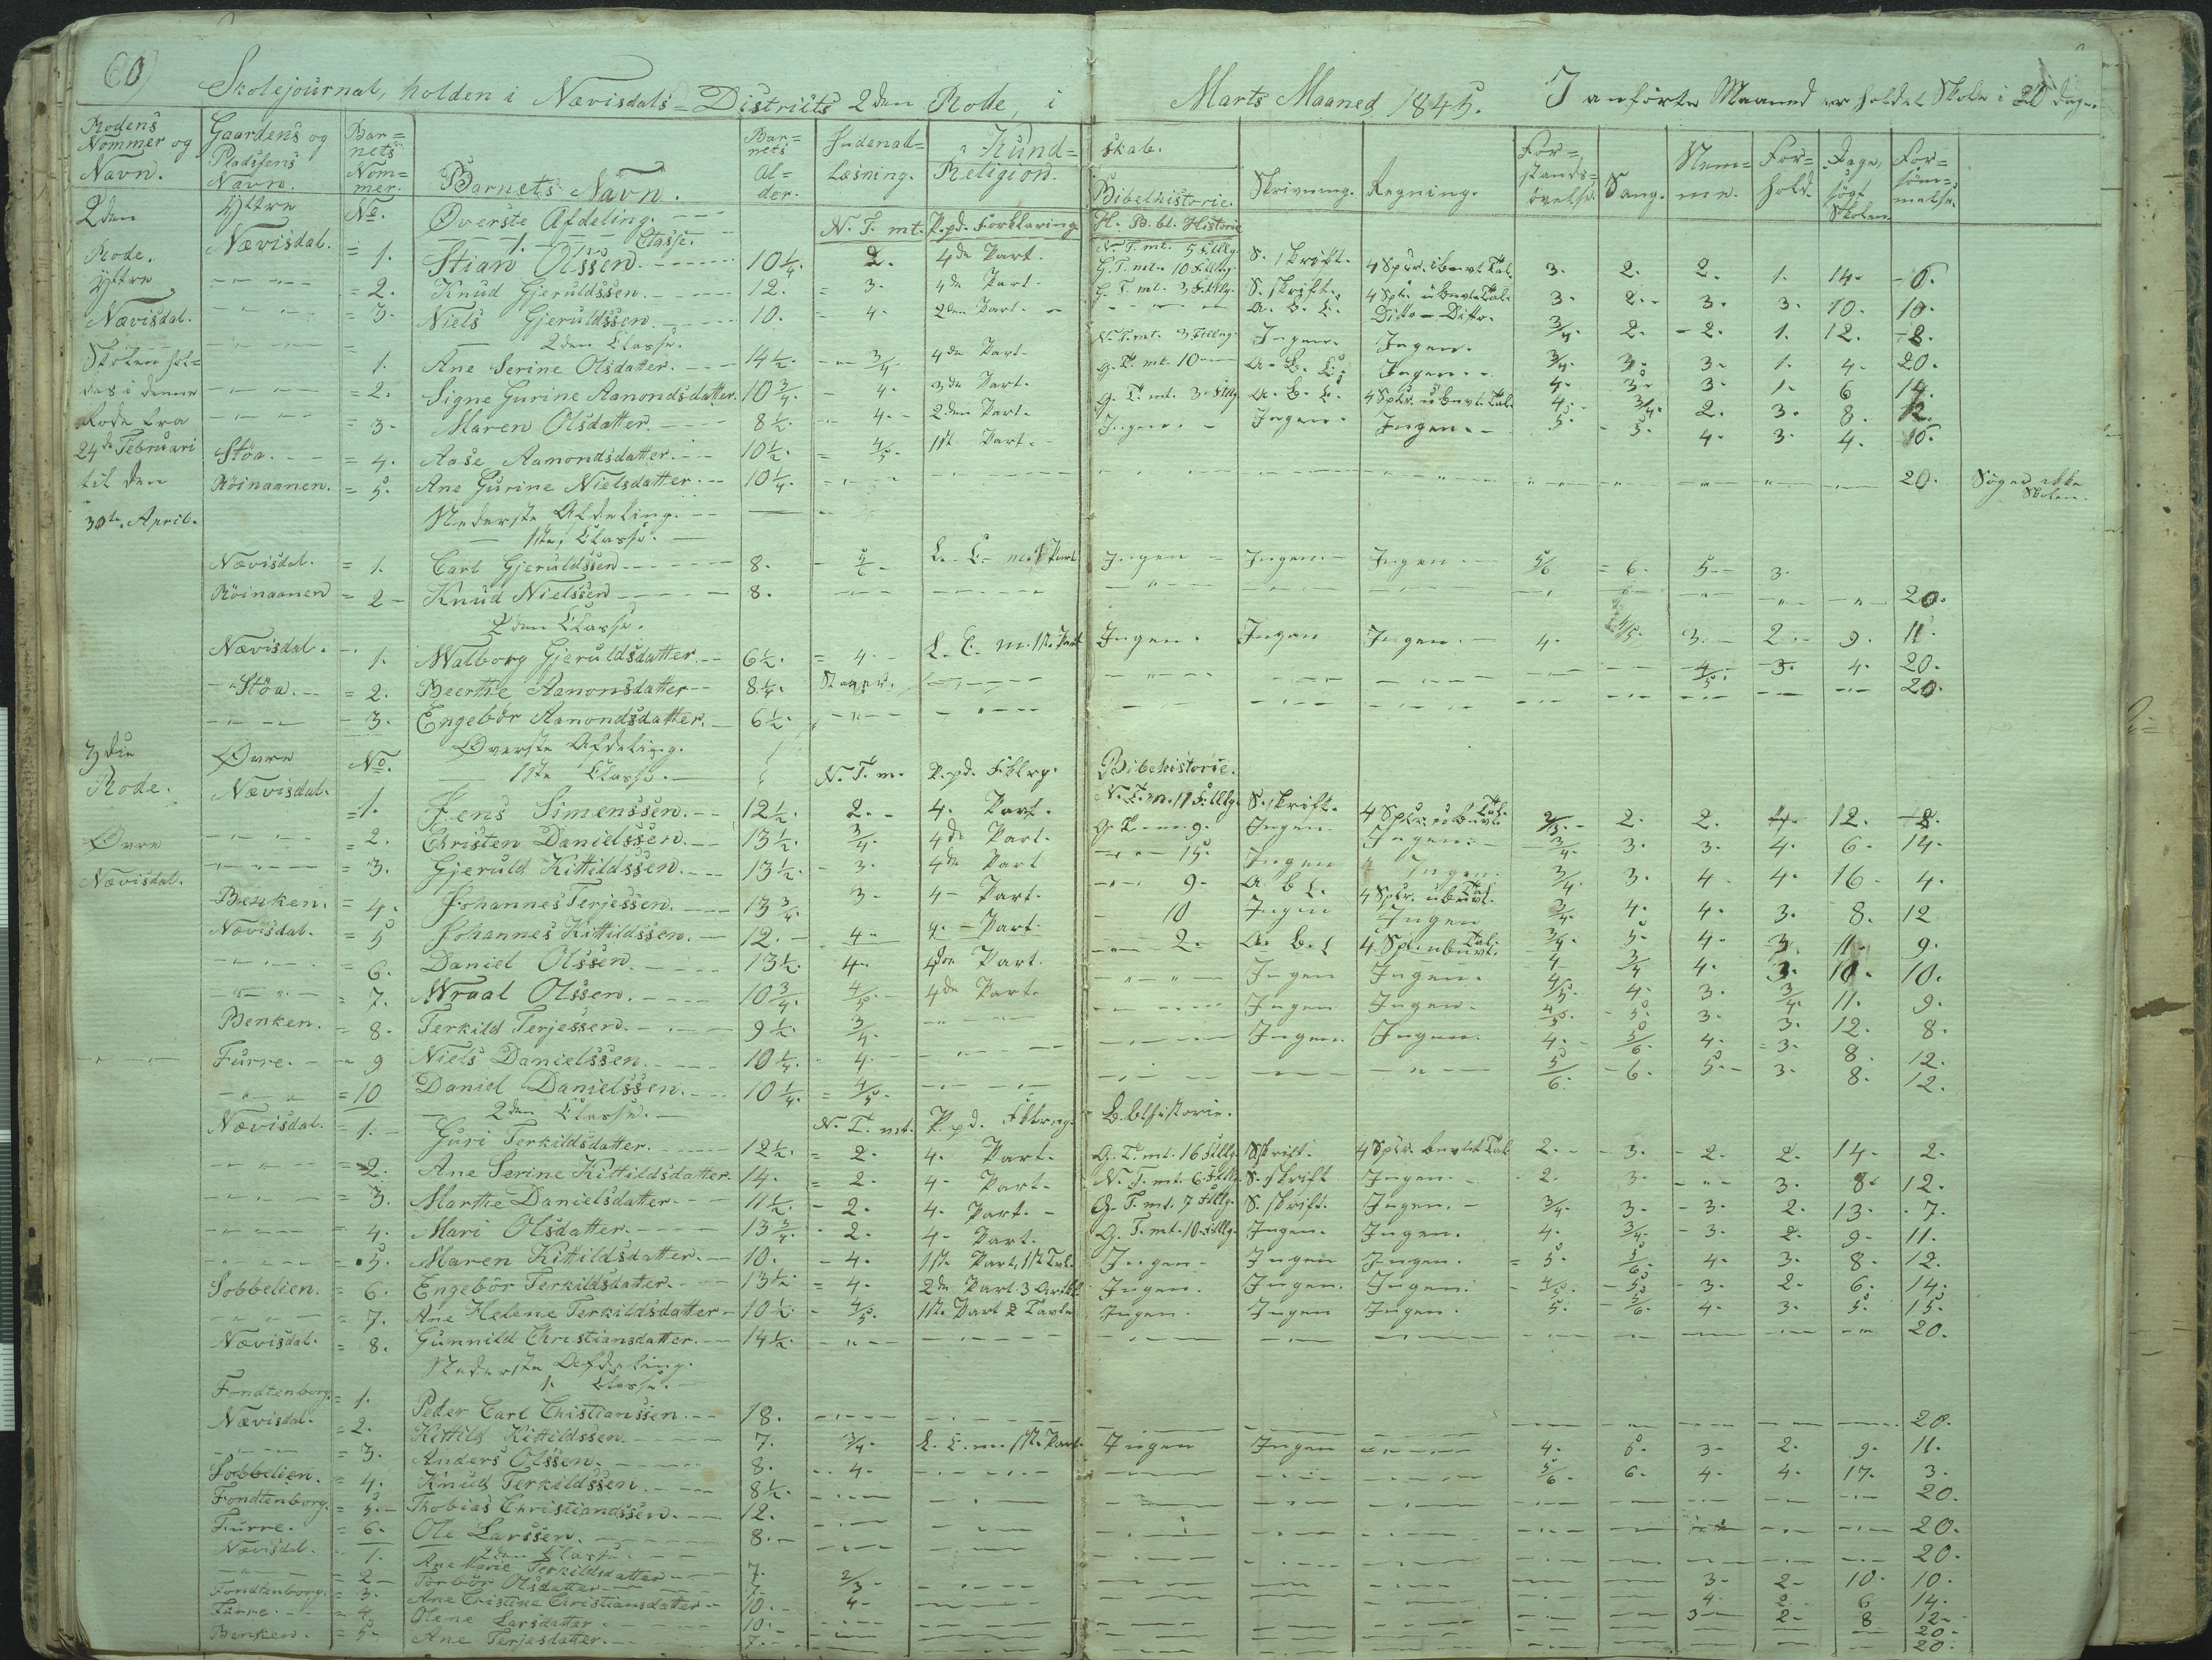 60
Skolejournal, holden i Nævisdals=Districts 2den Rode, i Marts Maaned 1845. I anförte Maaned er holdet Skole i 20 Dage.
Rodens Nommer og Navn. Gaardens og Pladssens Navn. Bar=nets Nom=mer. Barnets Navn. Bar=nets Al=der. Indenad=Læsning. Kund=skab. Religion. Bibelhistorie. Skrivning. Regning. For=stands=övelse. Sang. Nem=me. For=hold. Dage, sögt Skolen For=söm=melse.
2den Yttre No. Øverste Afdeling. N. T. mt. P.pd. Forklaring H. B. bl. Historie
Rode. Nævisdal. 1. Classe.
= 1. Stian Olssen. 10 1/4. 2. 4de Part. N. T. mt. 5 Fttllg. S. skrift. 4 Spec. ubnvt. Tal. 3. 2. 2. 1. 14. 6.
Yttre = 2. Knud Gjeruldssen. 12. = 3. 4de Part. G. T. mt. 10 Fttllg. S. skrift. 4 Spec. ubnvte Tal. 3. 2. 3. 3. 10. 10.
Nævisdal. = 3. Niels Gjeruldssen. 10. = 4. 2den Part. G. T. mt. 3 Fttllg. A. B. C. Ditto - Ditto. 3/4. 2. 2. 1. 12. 8.
2den Classe.
Skolen hol= 1. Ane Serine Olsdatter. 14 1/2. 3/4 4de Part. N. T. mt. 3 Fttllg. Ingen. Ingen. 3/4. 3. 3. 1. 4. 20.
des i denne = 2. Signe Gurine Aanondsdatter. 10 3/4. 4. 3de Part. G. T. mt. 10 A. B. C. Ingen. 4. 3. 3. 1. 6 14.
Rode fra = 3. Maren Olsdatter. 8 1/2. 4. 2den Part. G. T. mt. 3. Fttllg. A. B. C. 4 Spec. ubnvt. Tal. 4. 3/4. 2. 3. 8. 12.
24de Februari Støa. = 4. Aase Aamondsdatter. 10 1/2. = 4/5. 1ste Part. Ingen. Ingen. Ingen. 5. 5. 4. 3. 4. 16.
til den Röinaanen. = 5. Ane Gurine Nielsdatter. 10 1/4. 20. Søger ikke Skolen.
30te. April. Nederste Afdeling.
1ste Classe.
Nævisdal. = 1. Carl Gjeruldssen 8. 5/6. L. C. m. 1 Part Ingen Ingen Ingen 5/6 = 6. 5 3.
Röinaanen = 2 Knud Nielssen 8. 20.
2den Classe.
Nævisdal. 1. Walborg Gjeruldsdatter. 6 1/2. = 4. L. C. m. 1ste Part Ingen. Ingen Ingen. 4. 4/5. 3. 2. 9. 11.
Støa. = 2. Beerthe Aanonsdatter 8 1/4. Staver. 4/5. 3. 4. 20.
3. Engebör Aanondsdatter. 6 1/2. 20.
3die Øvre No. Øverste Afdeling.
Rode. Nævisdal. 1ste Classe. N. T. m. P.pd. Fklrg. Bibelhistorie.
=1. Jens Simenssen. 12 1/2. 2. 4. Part. N. T. m. 11 Fttllg. S. skrift. 4 Spec. ubnvt. Tal. 2/3. 2. 2. 4. 12. 8.
Øvre = 2. Christen Danielssen. 13 1/2. 3/4. 4de Part. G. T. m. 9. Ingen Ingen. 3/4. 3. 3. 4. 6. 14.
Nævisdal. = 3. Gjeruld Kittildssen. 13 1/2. 3. 4de Part 15. Ingen Ingen. 3/4. 3. 4 4. 16. 4.
Benken. = 4. Johannes Terjessen. 13 3/4. 3. 4. Part. 9. A B C. 4 Spec. ubnvt. Tal. 3/4. 4. 4. 3. 8. 12
Nævisdal. = 5 Johannes Kittildssen. 12. 4. 4. Part. 10 Ingen Ingen 3/4. 5. 4. 3. 11. 9.
= 6. Daniel Olssen. 13 1/2. 4. 4de Part. 2. A. B. C 4. Spc. ubnvt. Tal. 4 3/4 4. 3. 10. 10.
= 7. Wraal Olssen. 10 3/4. 4/5. 4de Part. Ingen Ingen. 4/5. 4. 3. 3/4. 11. 9.
Benken. = 8. Terkild Terjessen. 9 1/2. 3/4. Ingen Ingen. 4/5. 5. 3. 3. 12. 8.
Furre. 9 Niels Danielssen. 10 1/4. 4. Ingen. Ingen. 4. 5/6. 4. = 3. 8. 12.
= 10 Daniel Danielssen. 10 1/4. = 4/5. 5/6. 6. 5. 3. 8. 12.
2den Classe. N. T. mt. P.pd. Fklrng. B.blhistorie.
Nævisdal. = 1. Guri Terkildsdatter. 12 1/2. = 2. 4. Part. G. T. mt. 16 Fttllg. S.skrift. 4 Spec. bnvte Tal 2. 3. 2. 2. 14. 2.
= 2. Ane Serine Kittildsdatter. 14. = 2. 4. Part. N. T. mt. 6. Fttllg. S. skrift Ingen. 2. 3. 3. 8. 12.
= 3. Marthe Danielsdatter. 11 1/2. 2. 4. Part. G. T. mt. 7 Fttllg. S. skrift. Ingen. 3/4. 3. 3. 2. 13. 7.
= 4. Mari Olsdatter. 13 3/4. 2. 4. Part. G. T. mt. 10. Fttllg. Ingen. Ingen. 4. 3/4. 3. 2. 9. 11.
= 5. Maren Kittildsdatter. 10. 4. 1ste Part, 1ste Tal. Ingen. Ingen Ingen. = 5. 5/6. 4. 3. 8. 12.
Sobbelien. = 6. Engebör Terkildsdatter. 13 1/2. = 4. 2de Part. 3 Artkl. Ingen. Ingen. Ingen. 4/5. 5. 3. 2. 6. 14.
= 7. Ane Helene Terkildsdatter 10 1/2. 4/5. 1ste Part 2 Tavle Ingen Ingen Ingen. 5. 5/6. 4. 3. 5. 15.
Nævisdal. = 8. Gunnild Christiansdatter. 14 1/2. 20.
Nederste Afdeling.
1. Classe.
Fondtenborg. = 1. Peder Carl Chistianssen. 18. 20.
Nævisdal. = 2. Kittild Kittildssen. 7. 3/4. L. C. m. 1ste Part. Ingen Ingen 4. 5. 3. 2. 9. 11.
= 3. Anders Olssen. 8. 4. 5/6. 6. 4. 4. 17. 3.
Sobbelien. = 4. Knud Terkildssen. 8 1/2. 20.
Fondtenborg. = 5. Thobias Christianssen. 12. 20.
Furre. = 6. Ole Larssen. 8. 20.
2den Classe.
Nævisdal. 1. Ane Marie Terkildsdatter 7. 2/3. 3. 2. 10. 10.
= 2 Torbör Olsdatter 7. 4. 4. 2. 6 14.
Fondtenborg. = 3. Ane Christine Christiansdatter 10. 3 2. 8 12.
Furre. = 4. Olene Larsdatter. 10. 20.
Benken. = 5. Ane Terjesdatter. 7. 20.